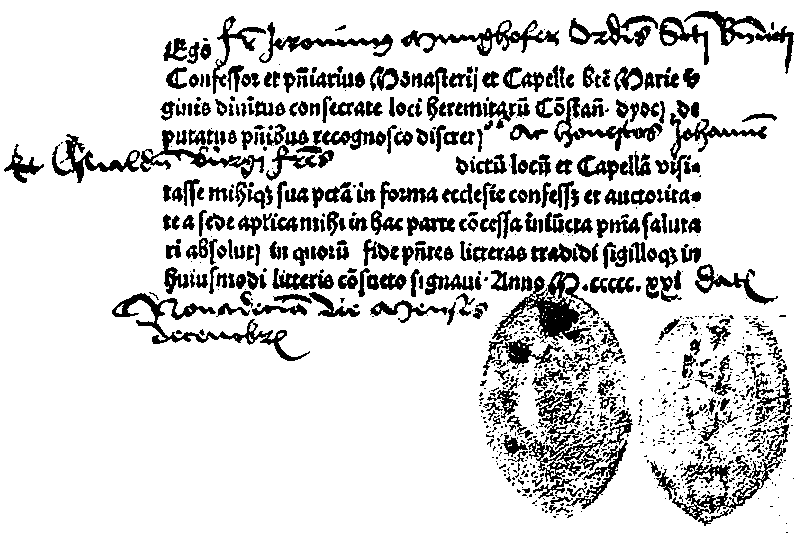 Ego fr̄ Jeronimus Munghofer Ordīs Scti Bn̄dicti
Confessor et pn̄iarius Monasterij et Capelle btē Marie v
ginis diuitus consecrate loci heremitarū Cōstan̄. dyoc̄ de
putatus pn̄ibus recognosco discret Ac honestos Johannē
Et fr̄es dictū locū et Capellā visi-
tasse mihiqꝫ sua pctā in forma ecclesie confessꝫ et auctorita-
te a sede aplica mihi in hac parte cōcessa iniūcta pn̄ia saluta
ri absolutꝫ in quorū fide pn̄tes litteras tradidi sigilloqꝫ in
huiusmodi litteris cōsueto signaui. Anno M.ccccc.xxi Dat
Nonadecima Die Mensis
decembrꝫ